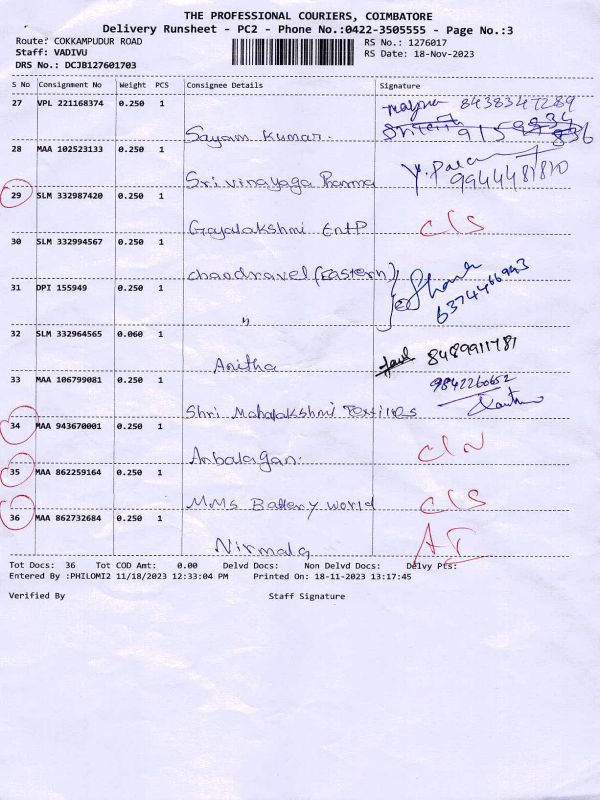 THE PROFESSIONAL COURIERS, COIMBATORE
Delivery Runsheet - PC2 - Phone No.:0422-3505555 - Page No.:3
Route: COKKAMPUDUR ROAD RS No.: 1276017
Staff: VADIVU RS Date: 18-Nov-2023
DRS No.: DCJB127601703
S No Consignment No Weight PCS Consignee Details Signature
27 VPL 221168374 0.250 1 8438347289
Sayam Kumar. 
28 MAA 102523133 0.250 1
Sri vinayaga Pharma 9944481810
29 SLM 332987420 0.250 1
Gajalakshmi EntP CIS
30 SLM 332994567 0.250 1
chandravel (Eastern)
31 DPI 155949 0.250 1 6374466943
"
32 SLM 332964565 0.060 1 8489911781
Anitha
33 MAA 106799081 0.250 1 9842260652
Shri Mahalakshmi Textiles
34 MAA 943670001 0.250 1
Anbalagan. CIN
35 MAA 862259164 0.250 1
MMs Battery world CIS
36 MAA 862732684 0.250 1
Nirmala AI
Tot Docs: 36 Tot COD Amt: 0.00 Delvd Docs: Non Delvd Docs: Delvy Pts:
Entered By :PHILOMI2 11/18/2023 12:33:04 PM Printed On: 18-11-2023 13:17:45
Verified By Staff Signature